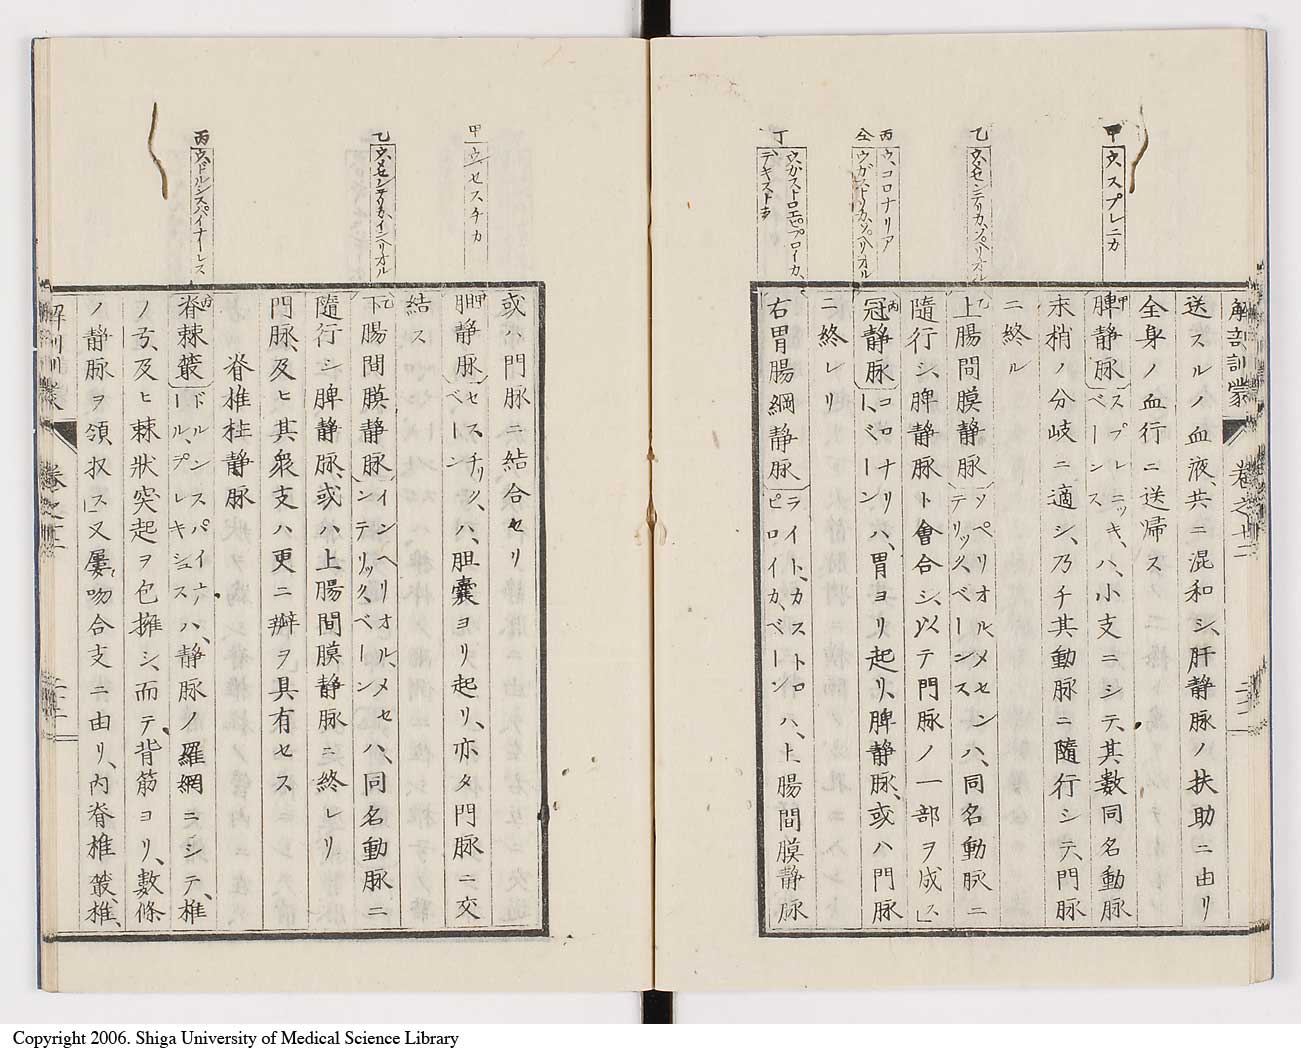 解剖訓蒙
巻之十二
甲 ウ、スプレニカ
乙 ウ、メセンテリカ、ソペリオル
丙 ウ、コロナリア
仝 ウ、ガストリカ、ソペリオル
丁 ウ、ガストロエピプロイカ、
デキストラ
送スルノ血液、共ニ混和シ、肝静脉ノ扶助ニ由リ
全身ノ血行ニ送帰ス
甲脾静脉 スプレニッキ、ベーンス ハ、小支ニシテ、其數同名動脉
末梢ノ分岐ニ適シ、乃チ其動脉ニ隨行シテ、門脉
ニ終ル
乙上腸間膜静脉 ソペリオル、メセンテリック、ベーンス ハ、同名動脉ニ
隨行シ、脾静脉ト會合シ、以テ門脉ノ一部ヲ成ス」
丙冠静脉 コロナリー、ベーン ハ、胃ヨリ起リ、脾静脉、或ハ門脉
ニ終レリ
右胃腸網静脉 ライト、カストロピロイカ、ベーン ハ、上腸間膜静脉
甲 ウ、セスチカ
乙 ウ、メセンテリカ、インヘリオル
丙 ウ、ドルシスパイナーレス
或ハ門脉ニ結合セリ
甲胆静脉 セスチック、ベーン ハ、胆嚢ヨリ起リ、亦タ門脉ニ交
結ス
乙下腸間膜静脉 インヘリオル、メセンテリック、ベーン ハ、同名動脉ニ
隨行シ脾静脉、或ハ上腸間膜静脉ニ終レリ
門脉、及ヒ其衆支ハ更ニ辨ヲ具有セス
脊椎柱静脉
丙脊棘叢 ドルンスパイナール、プレキシュス ハ、静脉ノ羅網ニシテ、椎
ノ弓、及ヒ棘狀突起ヲ包擁シ、而テ背筋ヨリ、數條
ノ静脉ヲ領収ス」又屢吻合支ニ由リ、内脊椎叢、椎、
解剖訓蒙
巻之十二